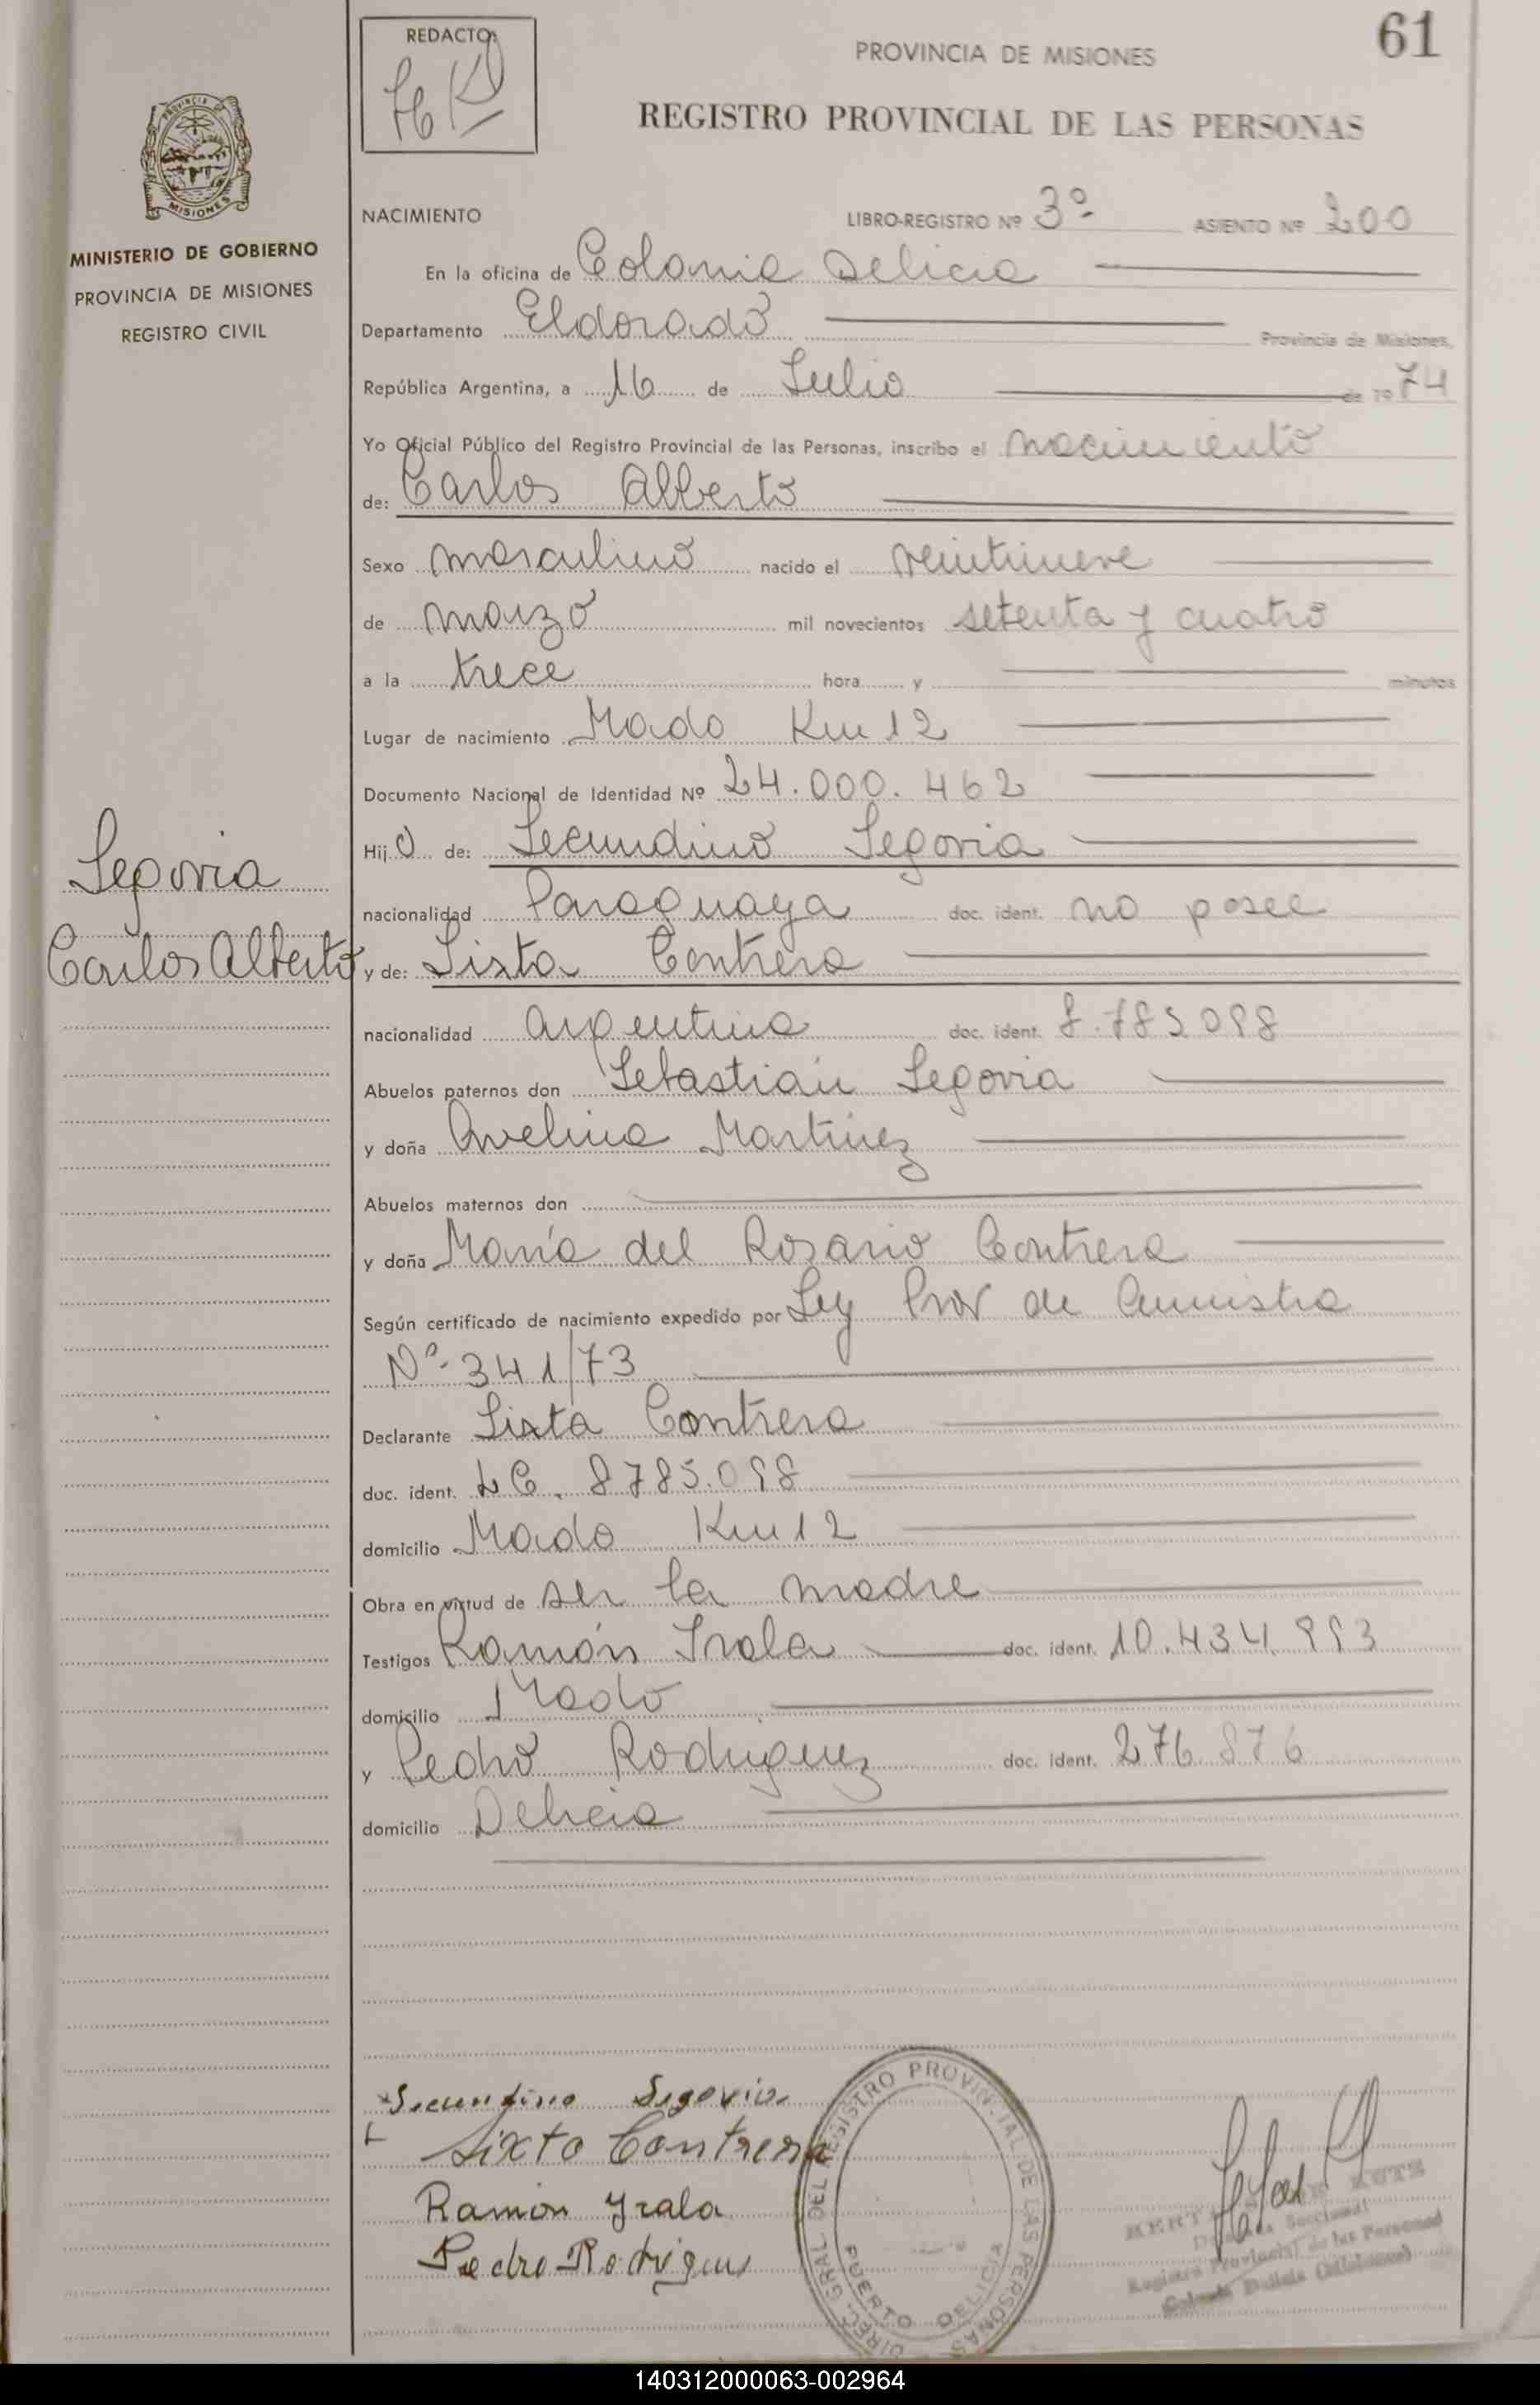 61
REDACTO:
PROVINCIA DE MISIONES
REGISTRO PROVINCIAL DE LAS PERSONAS
MISIONES
MINISTERIO DE GOBIERNO
PROVINCIA DE MISIONES
REGISTRO CIVIL
NACIMIENTO LIBRO-REGISTRO Nº 3º ASIENTO Nº 200
En la oficina de Colonia Delicia
Departamento Eldorado Provincia de Misiones,
República Argentina, a 16 de Julio de 1974
Yo Oficial Público del Registro Provincial de las Personas, inscribo el nacimiento
de: Carlos Alberto
Sexo masculino nacido el veintinueve
de marzo mil novecientos setenta y cuatro
a la trece hora y minutos
Lugar de nacimiento Mado Km 12
Documento Nacional de Identidad Nº 24.000.462
Hijo de: Secundino Segovia
Segovia
nacionalidad Paraguaya doc. ident. no posee
Carlos Alberto
y de: Sixta Contrera
nacionalidad argentina doc. ident. 8.785098
Abuelos paternos don Sebastián Segovia
y doña Avelina Martinez
Abuelos maternos don
y doña María del Rosario Contrera
Según certificado de nacimiento expedido por Ley Prov de Amnistia
Nº 341/73
Declarante Sixta Contrera
doc. ident. LC. 8785.098
domicilio Mado Km 12
Obra en virtud de ser la madre
Testigos Ramón Irala doc. ident. 10.434.993
domicilio Mado
y Pedro Rodriguez doc. ident. 276.876
domicilio Delicia
Secundino Segovia
Sixto Contrera
Ramon Yrala
Pedro Rodrigues
DIREC. GRAL DEL REGISTRO PROVINCIAL DE LAS PERSONAS
PUERTO DELICIA
Registro Provincial de las Personas
Colonia Delicia (Misiones)
140312000063-002964